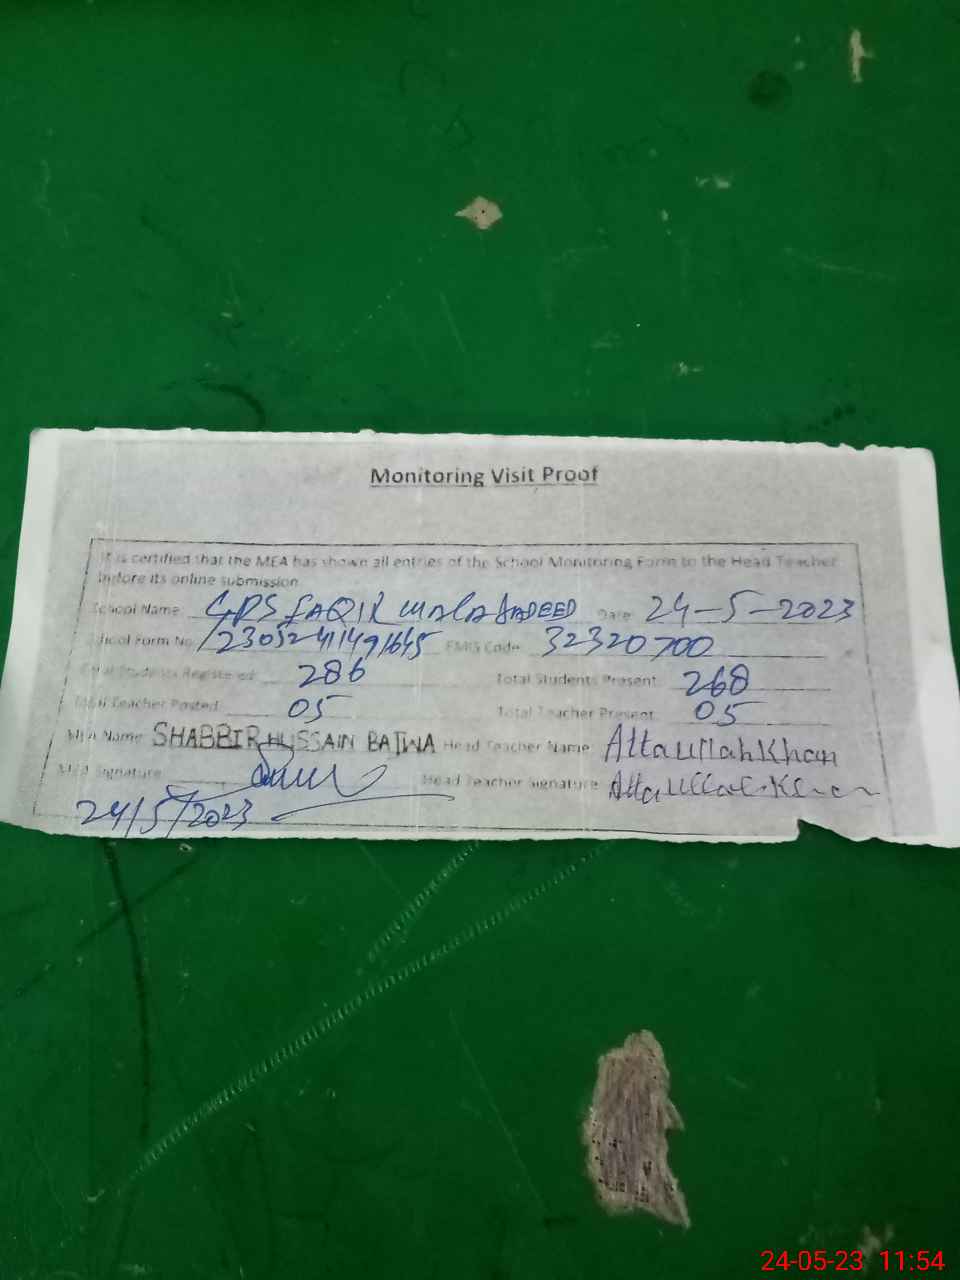 Monitoring Visit Proof
It is certified that the MEA has shown all entries of the School Monitoring Form to the Head Teacher
before its online submission
School Name GPS FAQIR WALA JADEED Date 24-5-2023
School Form No EMIS Code 32320700
Total Students Registered 286 Total Students Present 268
Total Teacher Posted 05 Total Teacher Present 05
MEA Name SHABBIR HUSSAIN BAJWA Head Teacher Name Attaullah Khan
MEA Signature Head Teacher Signature Attaullah Khan
24/5/2023
24-05-23 11:54